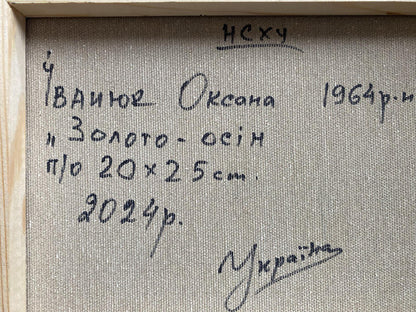 НСХУ
Іванюк Оксана 1964р.н
„Золото-осін
п/о 20×25 cm.
2024р.
Україна